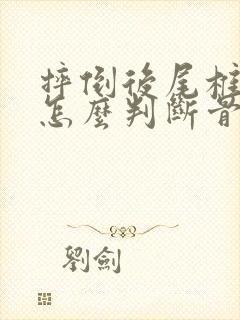 摔倒後尾椎
怎麼判斷骨
劉劍